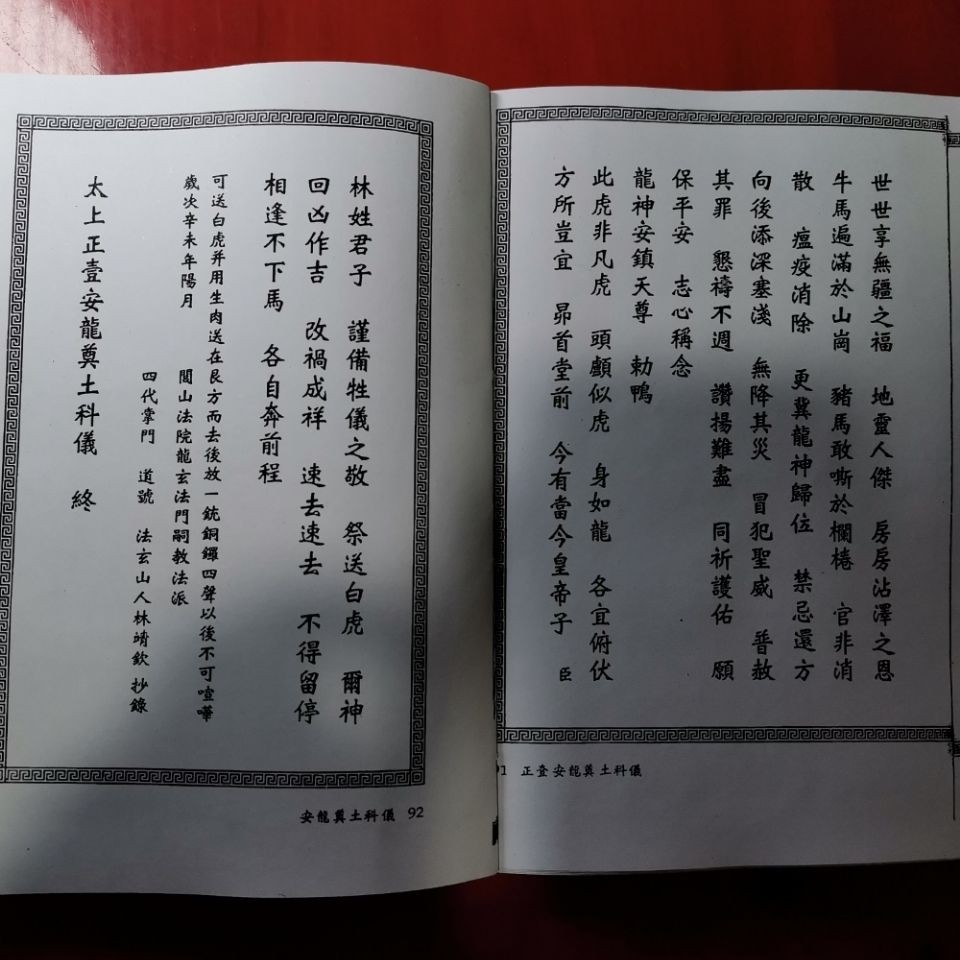 世世享無疆之福　地靈人傑　房房沾澤之恩
牛馬遍滿於山崗　豬馬敢嘶於欄棬　官非消
散　瘟疫消除　更冀龍神歸位　禁忌還方
向後添深塞淺　無降其災　冒犯聖威　普赦
其罪　懇禱不週　讚揚難盡　同祈護佑　願
保平安　志心稱念
龍神安鎮天尊　勅鴨
此虎非凡虎　頭顱似虎　身如龍　各宜俯伏
方所豈宜　昴首堂前　今有當今皇帝子　臣
91 正壹安龍奠土科儀
林姓君子　謹備牲儀之敬　祭送白虎　爾神
回凶作吉　改禍成祥　速去速去　不得留停
相逢不下馬　各自奔前程
可送白虎并用生肉送在艮方而去後放一銃銅鑼四聲以後不可喧嘩
歲次辛未年陽月
閭山法院龍玄法門嗣教法派
四代掌門　道號　法玄山人林靖欽　抄錄
太上正壹安龍奠土科儀　終
安龍奠土科儀 92